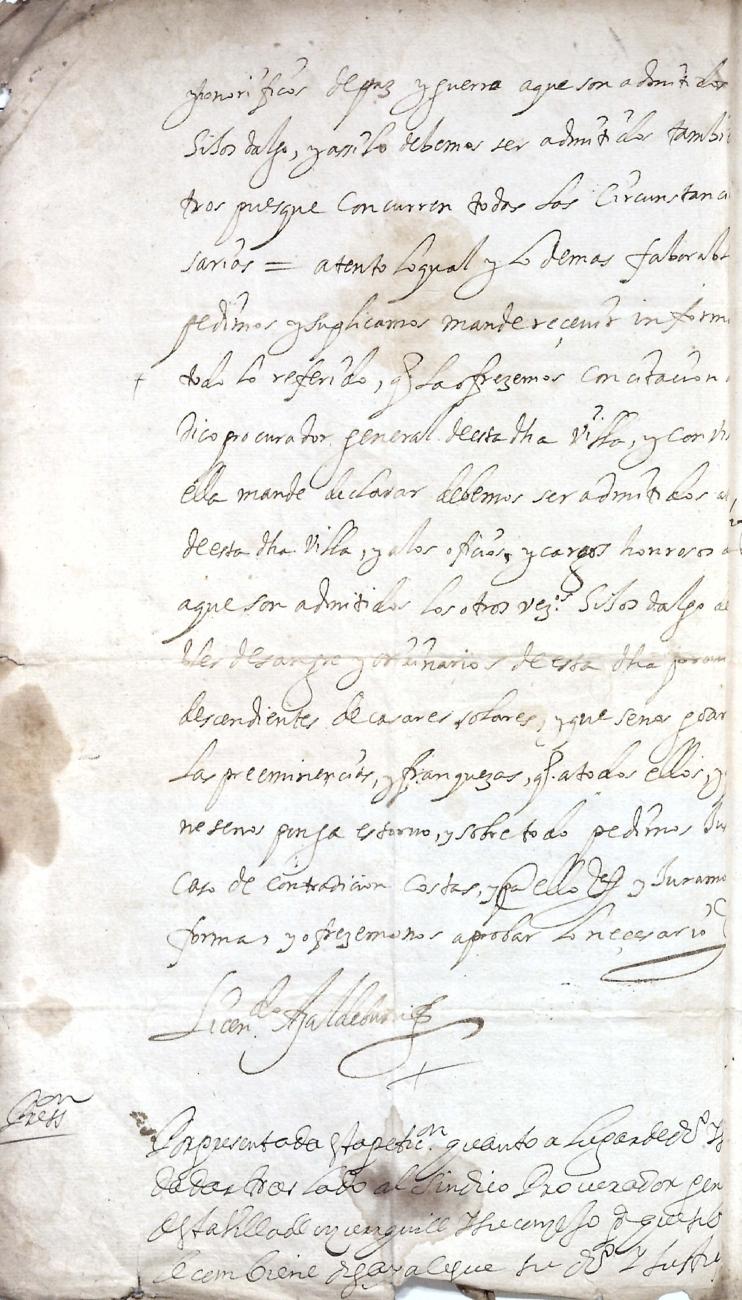 yhonorificos depaz yguerra aque son admitidos
Sijos dalgo, yassi lo debemos ser admitidos tambie
tros puesque Concurren todas las Circunstanci
sarias = atento loqual y lo demas faborabl
pedimos ysuplicamos mande reçevir inform
todo lo referido, q̃ la ofrezemos Con citacion
dico procurador general deesta dha Villa, y con vis
ella mande declarar debemos ser admitidos a
deesta dha Villa, yalos oficios, y cargos honrosos
aque son admitidos los otros vezos Sijos dalgo
bles desangre yoriginarios deesta dha
descendientes decasares solares, yque senos goar
las preeminencias, yfranquezas, q̃ atodos ellos, y
nesenos ponga estorvo, ysobre todo pedimos Jus
caso de contradicion Costas, ypa ello y Juramo
forma, yofrezemonos aprobar lo neçesario
Licendo
Press on
Por presentada esta peticon quanto a lugar de dro
da dar traslado al Sindico Procurador gen
desta Villa de
le combiene diga yalegue su dro